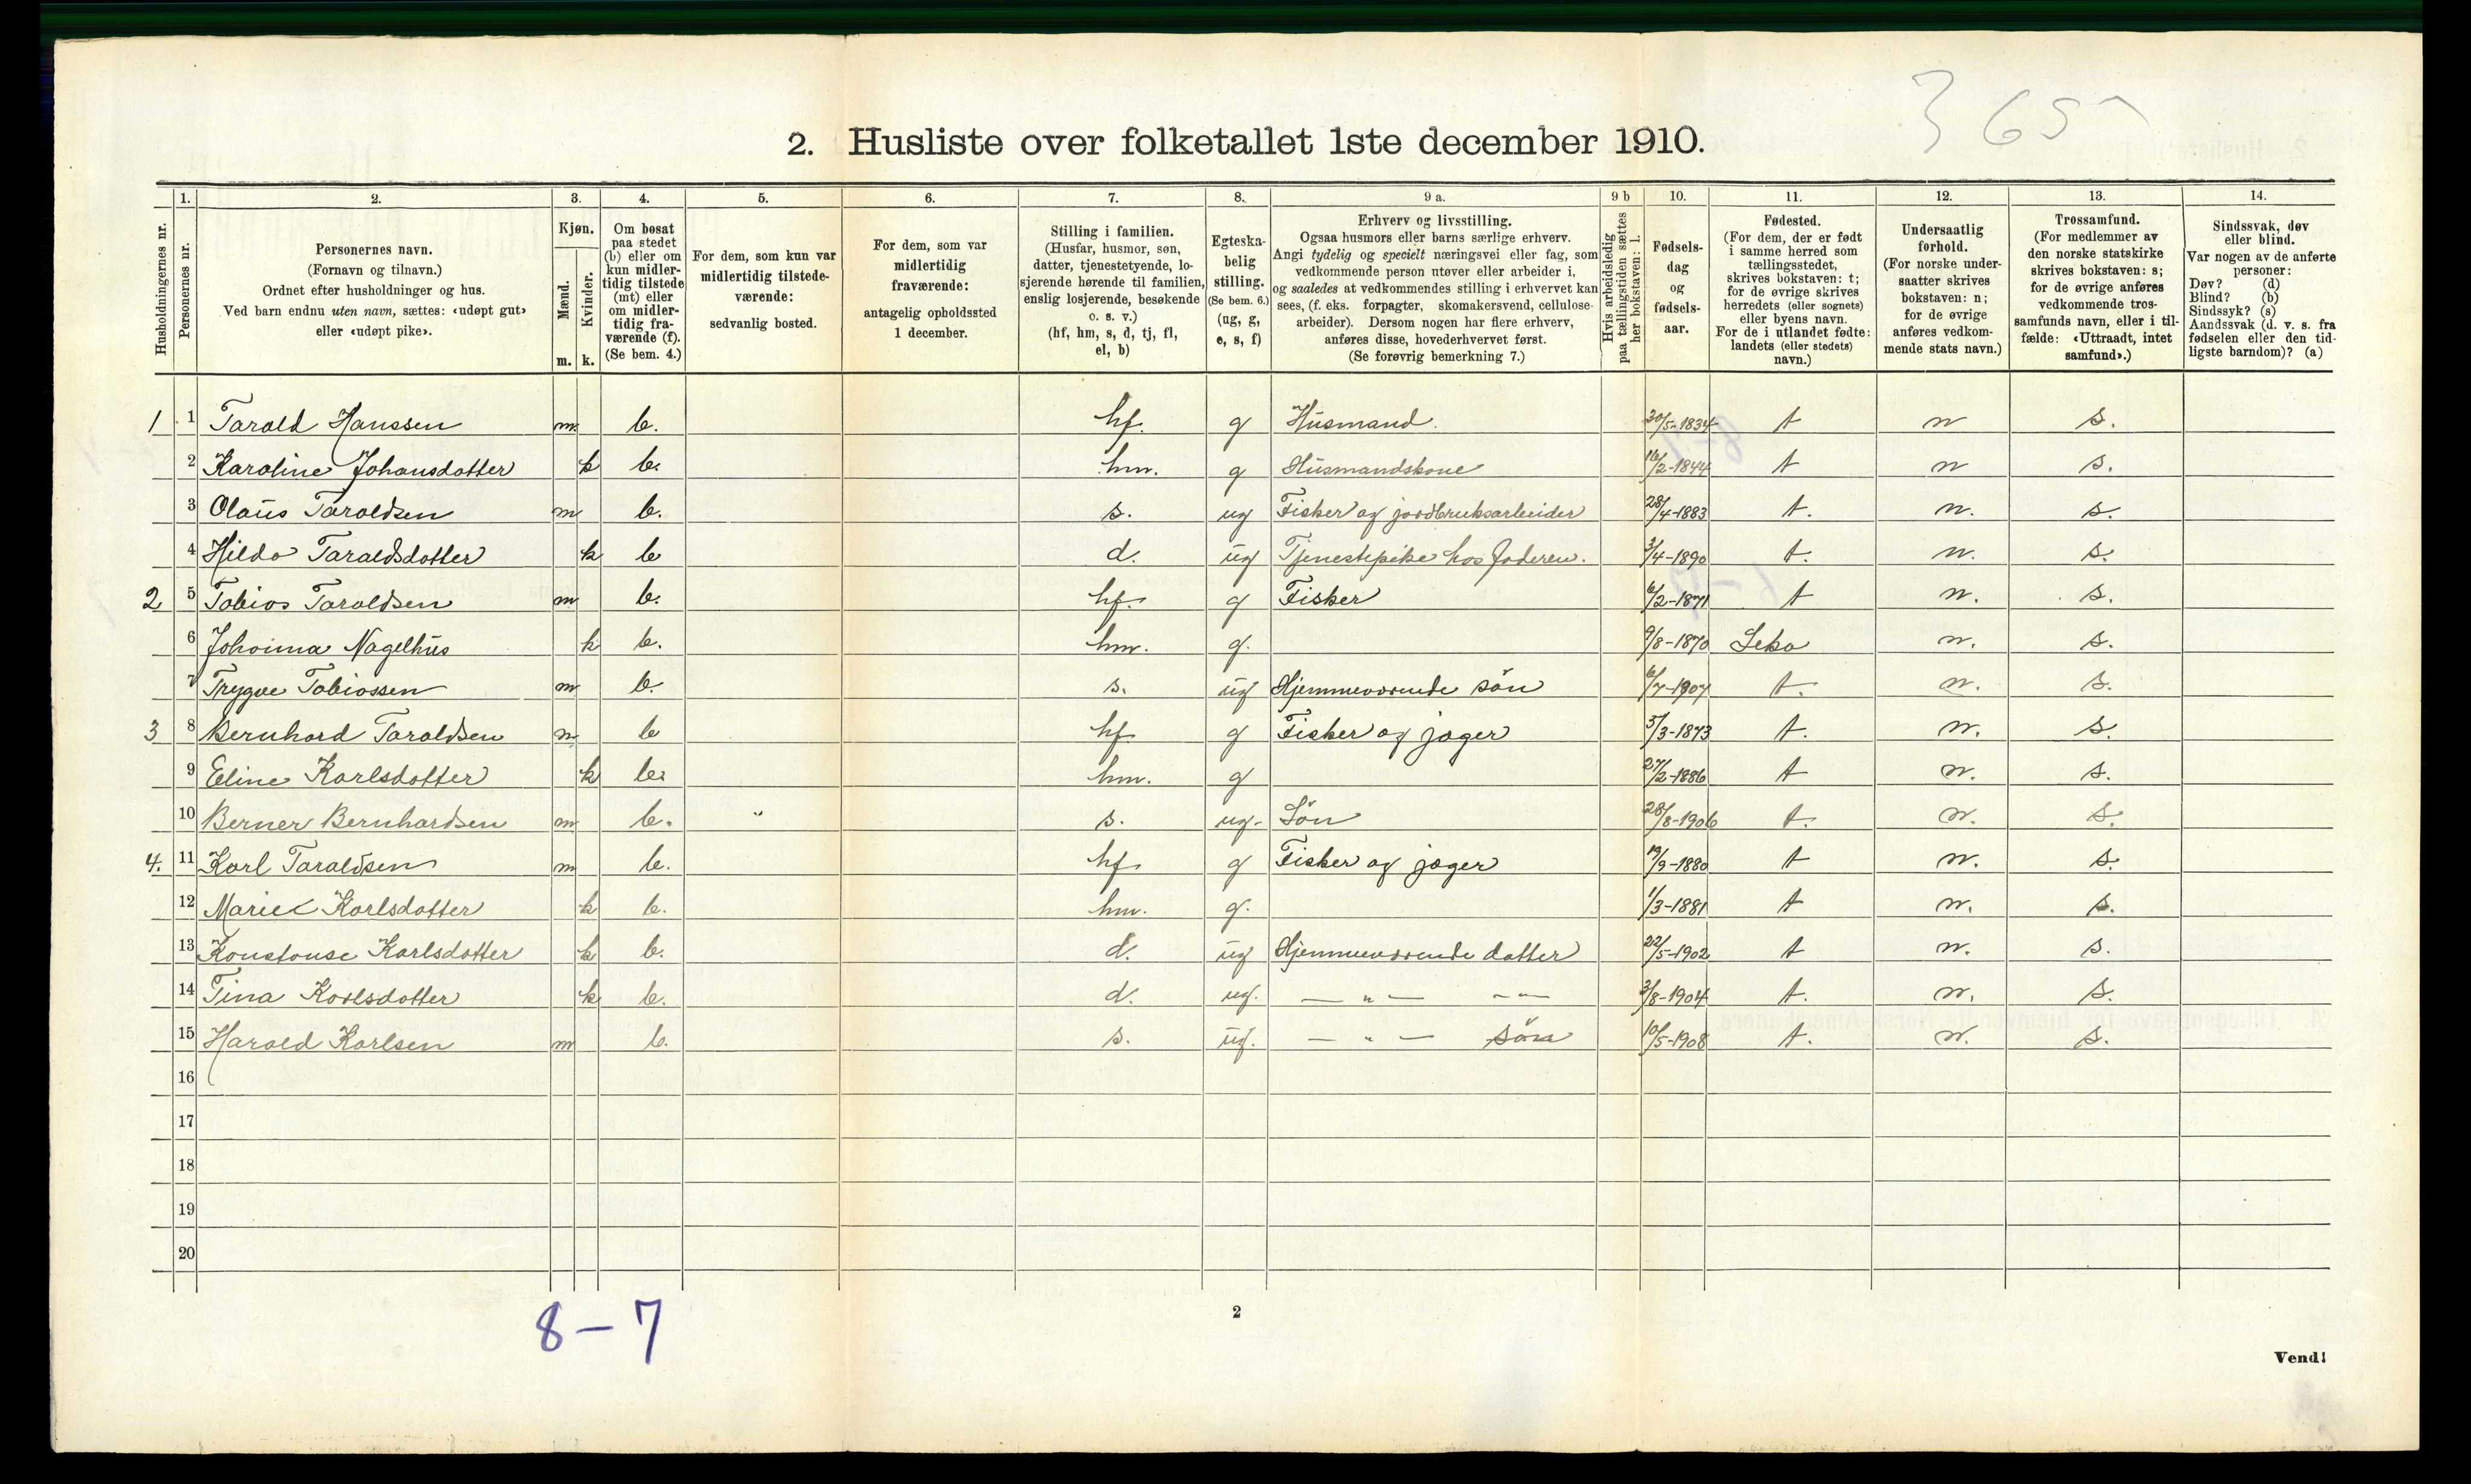 3 65
2. Husliste over folketallet 1ste december 1910.
Husholdningernes nr.
1. Personernes nr.
2. Personernes navn. (Fornavn og tilnavn.) Ordnet efter husholdninger og hus. Ved barn endnu uten navn, sættes: «udøpt gut» eller «udøpt pike».
3. Kjøn. Mænd. m. Kvinder. k.
4. Om bosat paa stedet (b) eller om kun midlertidig tilstede (mt) eller om midlertidig fraværende (f). (Se bem. 4.)
5. For dem, som kun var midlertidig tilstedeværende: sedvanlig bosted.
6. For dem, som var midlertidig fraværende: antagelig opholdssted 1 december.
7. Stilling i familien. (Husfar, husmor, søn, datter, tjenestetyende, losjerende hørende til familien, enslig losjerende, besøkende o. s. v.) (hf, hm, s, d, tj, fl, el, b)
8. Egteskabelig stilling. (Se bem. 6.) (ug, g, e, s, f)
9 a. Erhverv og livsstilling. Ogsaa husmors eller barns særlige erhverv. Angi tydelig og specielt næringsvei eller fag, som vedkommende person utøver eller arbeider i, og saaledes at vedkommendes stilling i erhvervet kan sees, (f. eks. forpagter, skomakersvend, cellulosearbeider). Dersom nogen har flere erhverv, anføres disse, hovederhvervet først. (Se forøvrig bemerkning 7.)
9 b Hvis arbeidsledig paa tællingstiden sættes her bokstaven: l.
10. Fødselsdag og fødselsaar.
11. Fødested. (For dem, der er født i samme herred som tællingsstedet, skrives bokstaven: t; for de øvrige skrives herredets (eller sognets) eller byens navn. For de i utlandet fødte: landets (eller stedets) navn.)
12. Undersaatlig forhold. (For norske undersaatter skrives bokstaven: n; for de øvrige anføres vedkommende stats navn.)
13. Trossamfund. (For medlemmer av den norske statskirke skrives bokstaven: s; for de øvrige anføres vedkommende trossamfunds navn, eller i tilfælde: «Uttraadt, intet samfund».)
14. Sindssvak, døv eller blind. Var nogen av de anførte personer: Døv? (d) Blind? (b) Sindssyk? (s) Aandssvak (d. v. s. fra fødselen eller den tidligste barndom)? (a)
1 1 Tarald Hanssen m. b. hf. g Husmand. 30/5-1834 t n s.
2 Karoline Johansdatter k b. hm. g Husmandskone 16/2-1844 t n s.
3 Olaüs Taraldsen m b. s. ug Fisker og jordbruksarbeider 28/4-1883 t. n. s.
4 Hilda Taraldsdatter k b d. ug Tjenestepike hos faderen. 3/4-1890 t. n. s.
2 5 Tobias Taraldsen m b. hf. g Fisker 6/2-1871 t n. s.
6 Johanna Nagelhus k b. hm. g. 9/8-1870 Leka n. s.
7 Trygve Tobiassen m b. s. ug Hjemmeværende søn 6/7-1907 t. n. s.
3 8 Bernhard Taraldsen m b hf. g Fisker og jæger 5/3-1873 t. n. s.
9 Eline Karlsdatter k b. hm. g 27/2-1886 t n. s.
10 Berner Bernhardsen m b. " s. ug. Søn 28/8-1906 t. n. s.
4. 11 Karl Taraldsen m b. hf. g Fisker og jæger 19/9-1880 t n. s.
12 Marie Karlsdatter k b. hm. g. 1/3-1881 t n. s.
13 Konstanse Karlsdatter k b. d. ug Hjemmeværende datter 22/5-1902 t n. s.
14 Tina Karlsdatter k b. d. ug. — " — — " — 3/8-1904 t. n. s.
15 Harald Karlsen m b. s. ug. — " — søn 10/5-1908 t. n. s.
16
17
18
19
20
8 – 7
2
Vend!